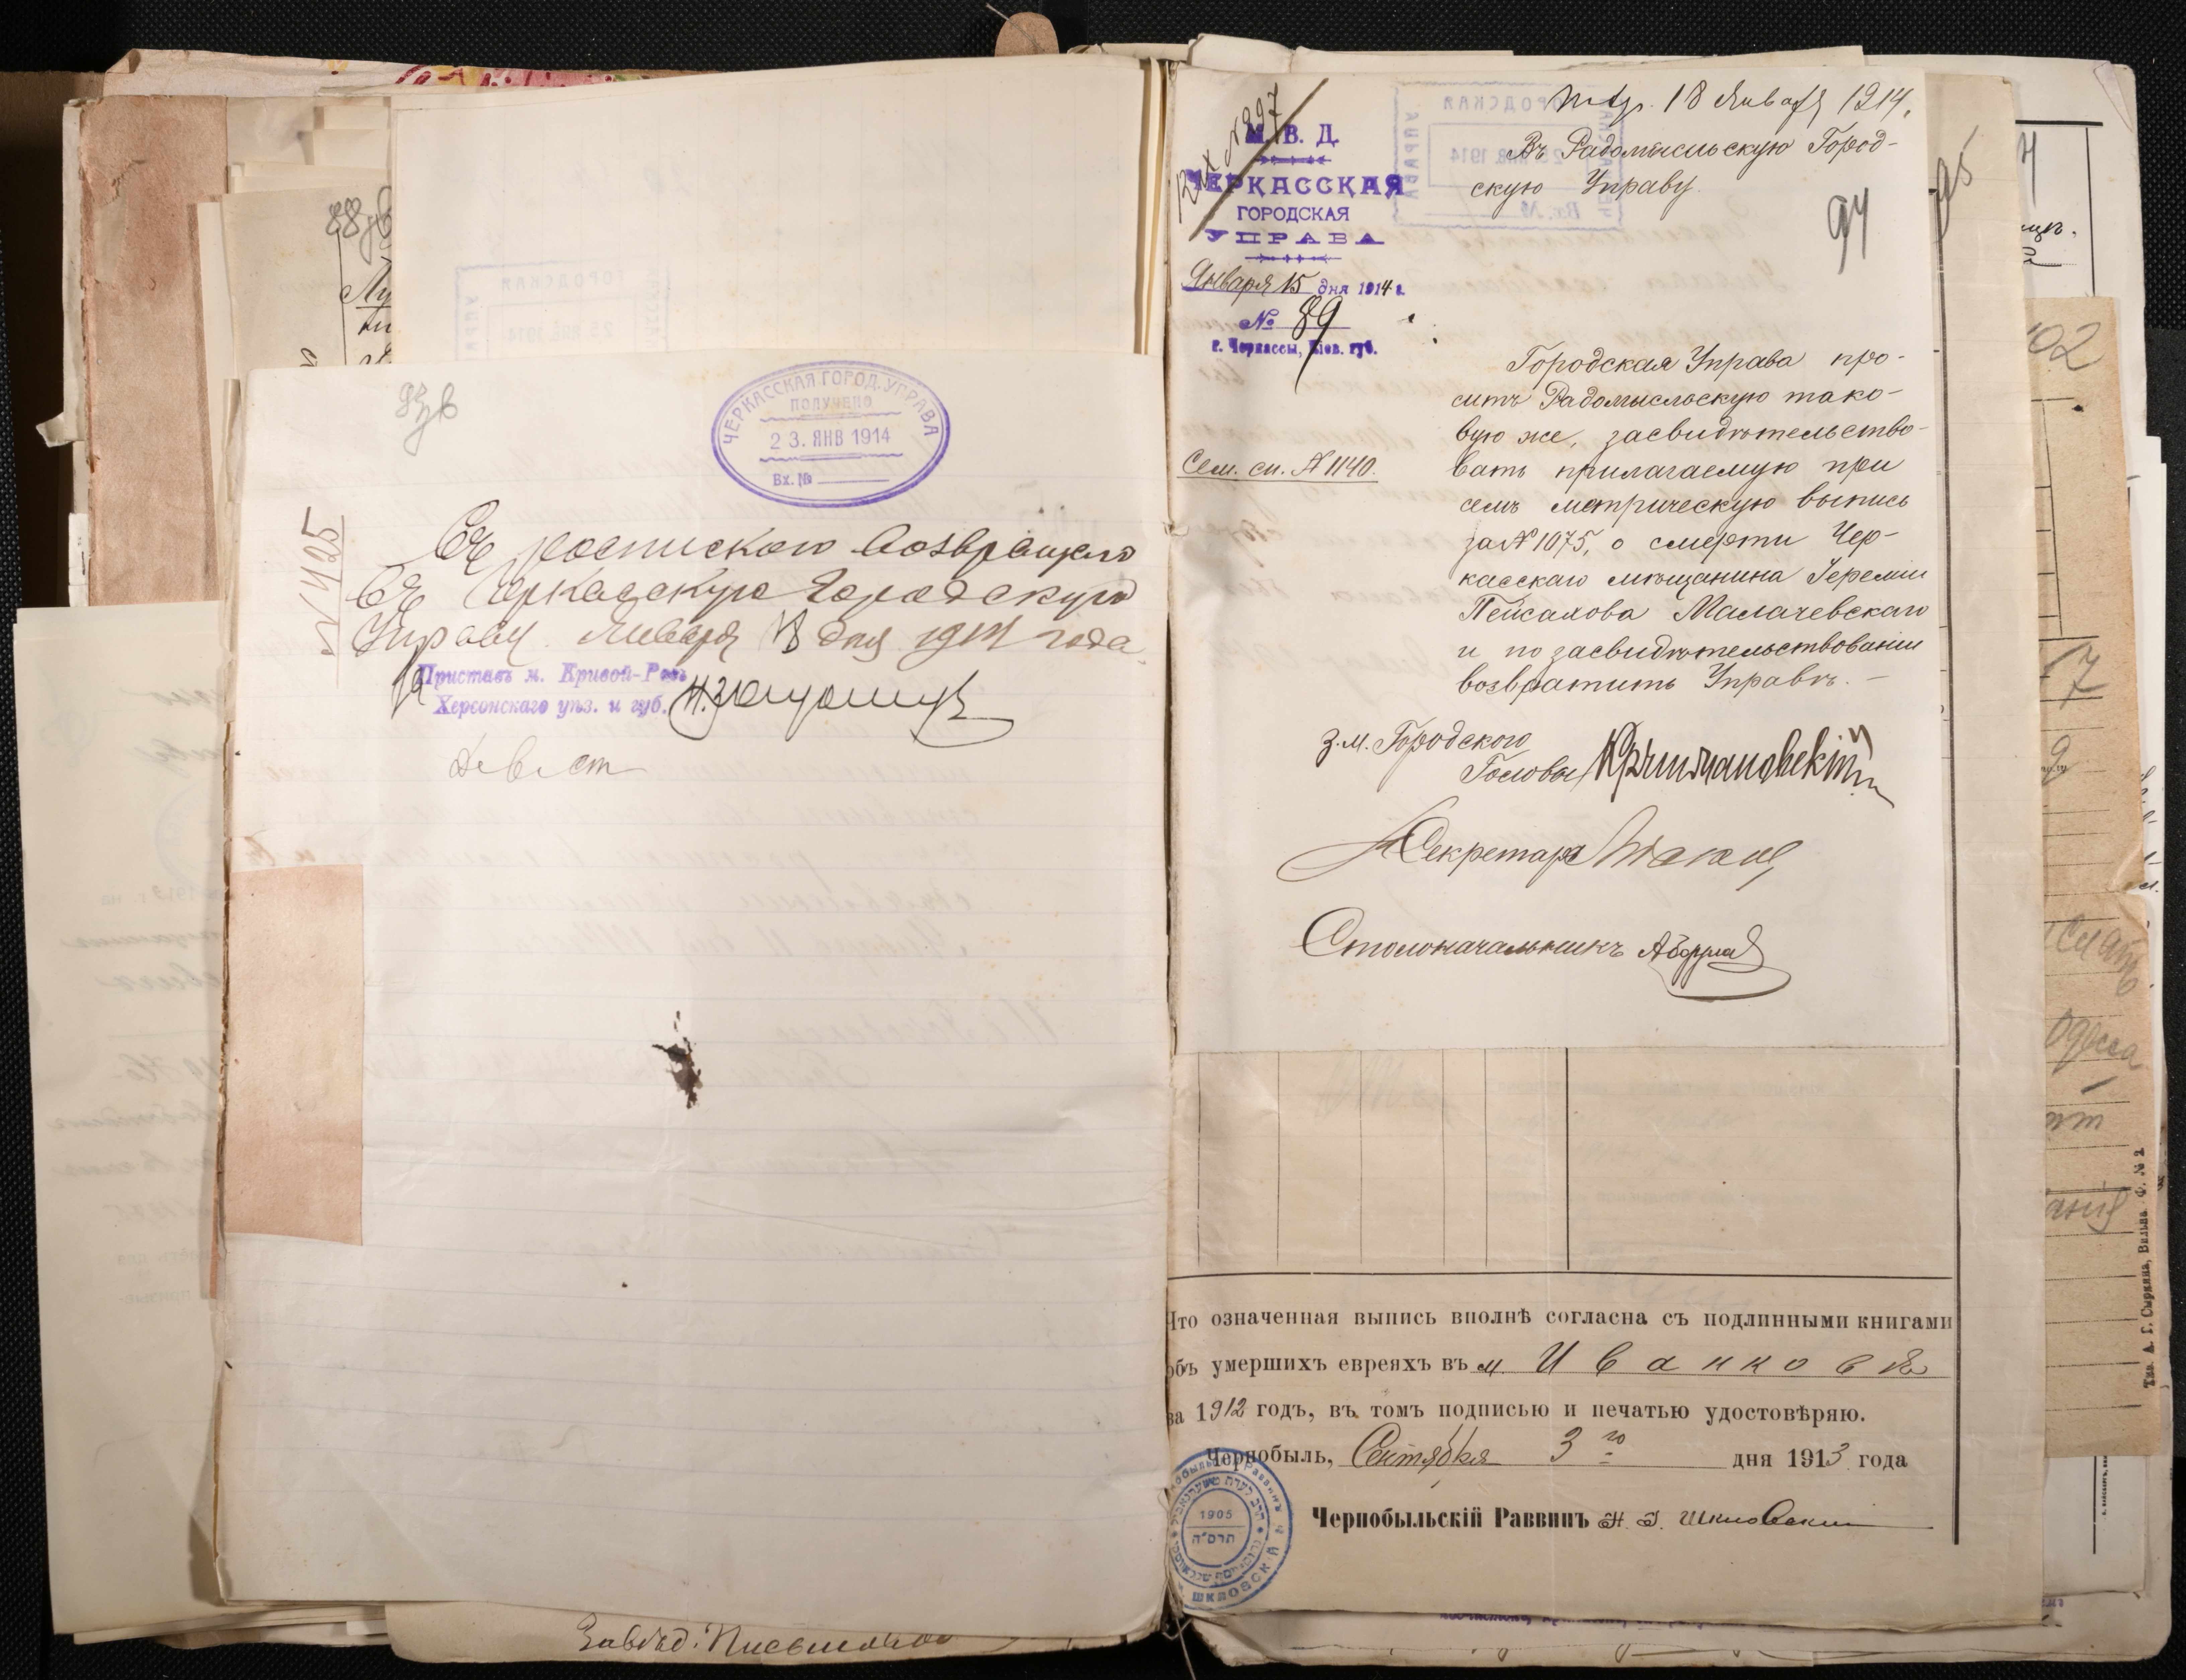 93 об
ЧЕРКАССКАЯ ГОРОД. УПРАВА
ПОЛУЧЕНО
23. ЯНВ 1914
Вх. №
N 425
Съ роспискою возвращаю
въ Черкасскую Городскую
Управу. Января 18 дня 1914 года
Приставъ м. Кривой-Рогъ
Херсонскаго уѣз. и губ.
Завѣд.
18 Января 1914.
Въ Радомысльскую Город-
скую Управу.
94
95
Вх N 897
М. В. Д.
ЧЕРКАССКАЯ
ГОРОДСКАЯ
УПРАВА
Января 15 дня 1914 г.
№ 89
г. Черкассы, Кіев. губ.
Сем. сп. N 1140.
Городская Управа про-
ситъ Радомысльскую тако-
вую же, засвидѣтельство-
вать прилагаемую при
семъ метрическую выпись
за N 1075, о смерти Чер-
касскаго мѣщанина Іереміи
Пейсахова Малачевскаго
и по засвидѣтельствованіи
возвратить Управѣ. —
З. м. Городского
Головы Крыжановскій
Секретарь
Столоначальникъ
Что означенная выпись вполнѣ согласна съ подлинными книгами
объ умершихъ евреяхъ въ м. Иванковѣ
за 1912 годъ, въ томъ подписью и печатью удостовѣряю.
Чернобыль, Сентября 3го дня 1913 года
Чернобыльскій Раввинъ Шкловскій
1905
תרס"ה
ШКЛОВСКІЙ
102
17
9
Одесса
Тип. А. Г. Сыркина, Вильна. Ф. № 2